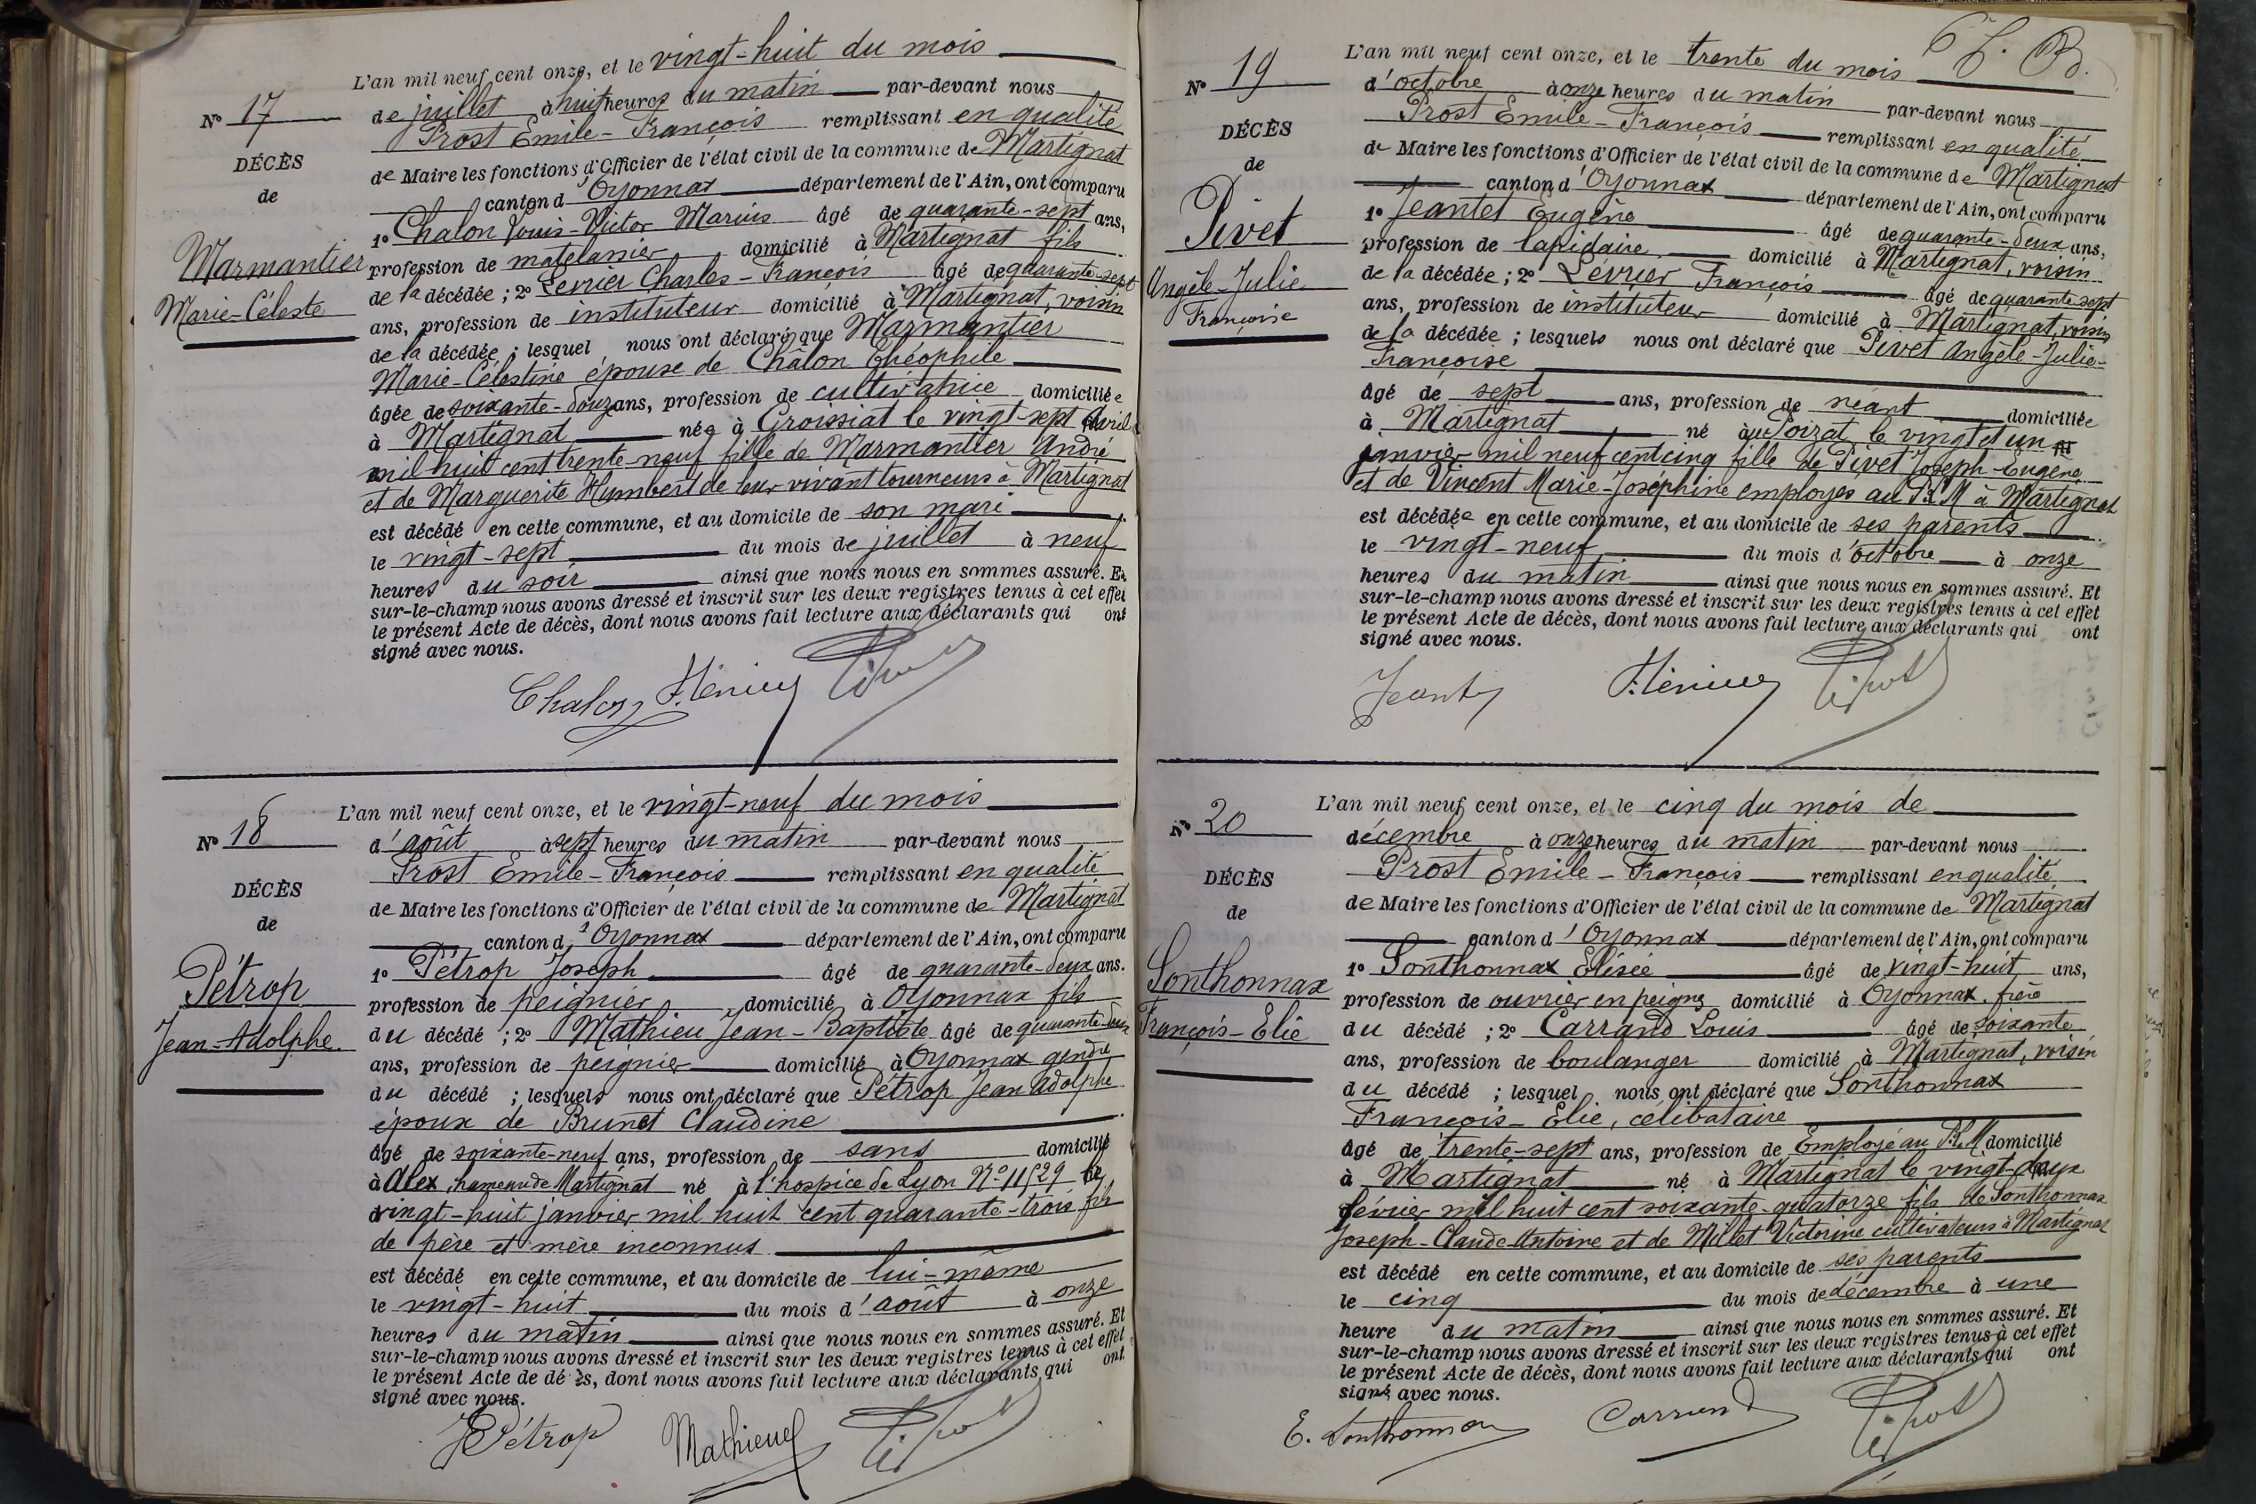 L'an mil neuf cent onze, et le vingt-huit du mois
de juillet à huit heures du matin par-devant nous
Prost Emile-François remplissant en qualité
de Maire les fonctions d'Officier de l'état civil de la commune de Martignat
canton d'Oyonnax département de l'Ain, ont comparu
1º Chalon Louis-Victor Marius âgé de quarante-sept ans,
profession de matelassier domicilié à Martignat fils
de la décédée ; 2º Levrier Charles-François âgé de quarante-sept
ans, profession de instituteur domicilié à Martignat, voisin
de la décédée ; lesquel nous ont déclaré que Marmantier
Marie-Célestine épouse de Chalon Théophile
âgée de soixante-douze ans, profession de cultivatrice domiciliée
à Martignat née à Groissiat le vingt-sept avril
mil huit cent trente-neuf fille de Marmantier André
et de Marguerite Humbert de leur vivant tourneurs à Martignat
est décédé en cette commune, et au domicile de son mari
le vingt-sept du mois de juillet à neuf
heures du soir ainsi que nous nous en sommes assuré. Et
sur-le-champ nous avons dressé et inscrit sur les deux registres tenus à cet effet
le présent Acte de décès, dont nous avons fait lecture aux déclarants qui ont
signé avec nous.
Nº 17
DÉCÈS
de
Marmantier
Marie-Céleste
Chalon
L'an mil neuf cent onze, et le vingt-neuf du mois
d'août à sept heures du matin par-devant nous
Prost Emile-François remplissant en qualité
de Maire les fonctions d'Officier de l'état civil de la commune de Martignat
canton d'Oyonnax département de l'Ain, ont comparu
1º Pétrop Joseph âgé de quarante-deux ans.
profession de peignier domicilié à Oyonnax fils
du décédé ; 2º Mathieu Jean-Baptiste âgé de quarante-deux
ans, profession de peignier domicilié à Oyonnax gendre
du décédé ; lesquels nous ont déclaré que Pétrop Jean Adolphe
époux de Brunet Claudine
âgé de soixante-neuf ans, profession de sans domicilié
à Alex, hameau de Martignat né à l'hospice de Lyon Nº 11529 le
vingt-huit janvier mil huit cent quarante-trois fils
de père et mère inconnus
est décédé en cette commune, et au domicile de lui-même
le vingt-huit du mois d'août à onze
heures du matin ainsi que nous nous en sommes assuré. Et
sur-le-champ nous avons dressé et inscrit sur les deux registres tenus à cet effet
le présent Acte de dé ès, dont nous avons fait lecture aux déclarants qui ont
signé avec nous.
Nº 18
DÉCÈS
de
Pétrop
Jean-Adolphe.
Pétrop Mathieu
L'an mil neuf cent onze, et le trente du mois
d'octobre à onze heures du matin par-devant nous
Prost Emile-François remplissant en qualité
de Maire les fonctions d'Officier de l'état civil de la commune de Martignat
canton d'Oyonnax département de l'Ain, ont comparu
1º Jeantet Eugène âgé de quarante-deux ans,
profession de lapidaire domicilié à Martignat, voisin
de la décédée ; 2º Lévrier François âgé de quarante-sept
ans, profession de instituteur domicilié à Martignat, voisin
de la décédée ; lesquels nous ont déclaré que Pivet Angèle-Julie-
Françoise
âgé de sept ans, profession de néant domiciliée
à Martignat né au Poizat le vingt et un
janvier mil neuf cent cinq fille de Pivet Joseph-Eugène
et de Vincent Marie-Joséphine employés au P.L.M à Martignat
est décédée en cette commune, et au domicile de ses parents
le vingt-neuf du mois d'octobre à onze
heures du matin ainsi que nous nous en sommes assuré. Et
sur-le-champ nous avons dressé et inscrit sur les deux registres tenus à cet effet
le présent Acte de décès, dont nous avons fait lecture aux déclarants qui ont
signé avec nous.
Nº 19
DÉCÈS
de
Pivet
Angèle-Julie
Françoise
L'an mil neuf cent onze, et le cinq du mois de
décembre à onze heures du matin par-devant nous
Prost Emile-François remplissant en qualité
de Maire les fonctions d'Officier de l'état civil de la commune de Martignat
canton d'Oyonnax département de l'Ain, ont comparu
1º Sonthonnax Elisée âgé de vingt-huit ans,
profession de ouvrier en peignes domicilié à Oyonnax, frère
du décédé ; 2º Carrand Louis âgé de soixante
ans, profession de boulanger domicilié à Martignat, voisin
du décédé ; lesquel nous ont déclaré que Sonthonnax
François-Elie, célibataire
âgé de trente-sept ans, profession de Employé au P.L.M domicilié
à Martignat né à Martignat le vingt-deux
février mil huit cent soixante-quatorze fils de Sonthonnax
Joseph-Claude-Antoine et de Millet Victorine cultivateurs à Martignat
est décédé en cette commune, et au domicile de ses parents
le cinq du mois de décembre à une
heure du matin ainsi que nous nous en sommes assuré. Et
sur-le-champ nous avons dressé et inscrit sur les deux registres tenus à cet effet
le présent Acte de décès, dont nous avons fait lecture aux déclarants qui ont
signé avec nous.
Nº 20
DÉCÈS
de
Sonthonnax
François-Elie
E. Sonthonnax Carrand